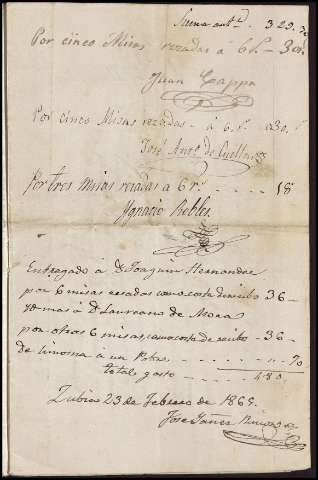 Suma antr. . 329.30
Por cinco Misas rezadas á 6 r. - 30 r.
Juan Zappa
Por cinco Misas rezadas - á 6 r. . . 030. r.
José Anto. de Cuellar
Por tres misas rezadas a 6 r. . . . . . . 18
Ygnacio Robles
Entregado á Dn Joaquin Hernandez
por 6 misas rezadas como costa de recibo - 36 -
Yd. mas á Dn Laureano de Mora
por otras 6 misas, como costa de recibo - 36 -
de limosna á un Pobre . . . . . . 70
total gasto . . . . 480
Zubia 23 de Febrero de 1865.
José Yañez